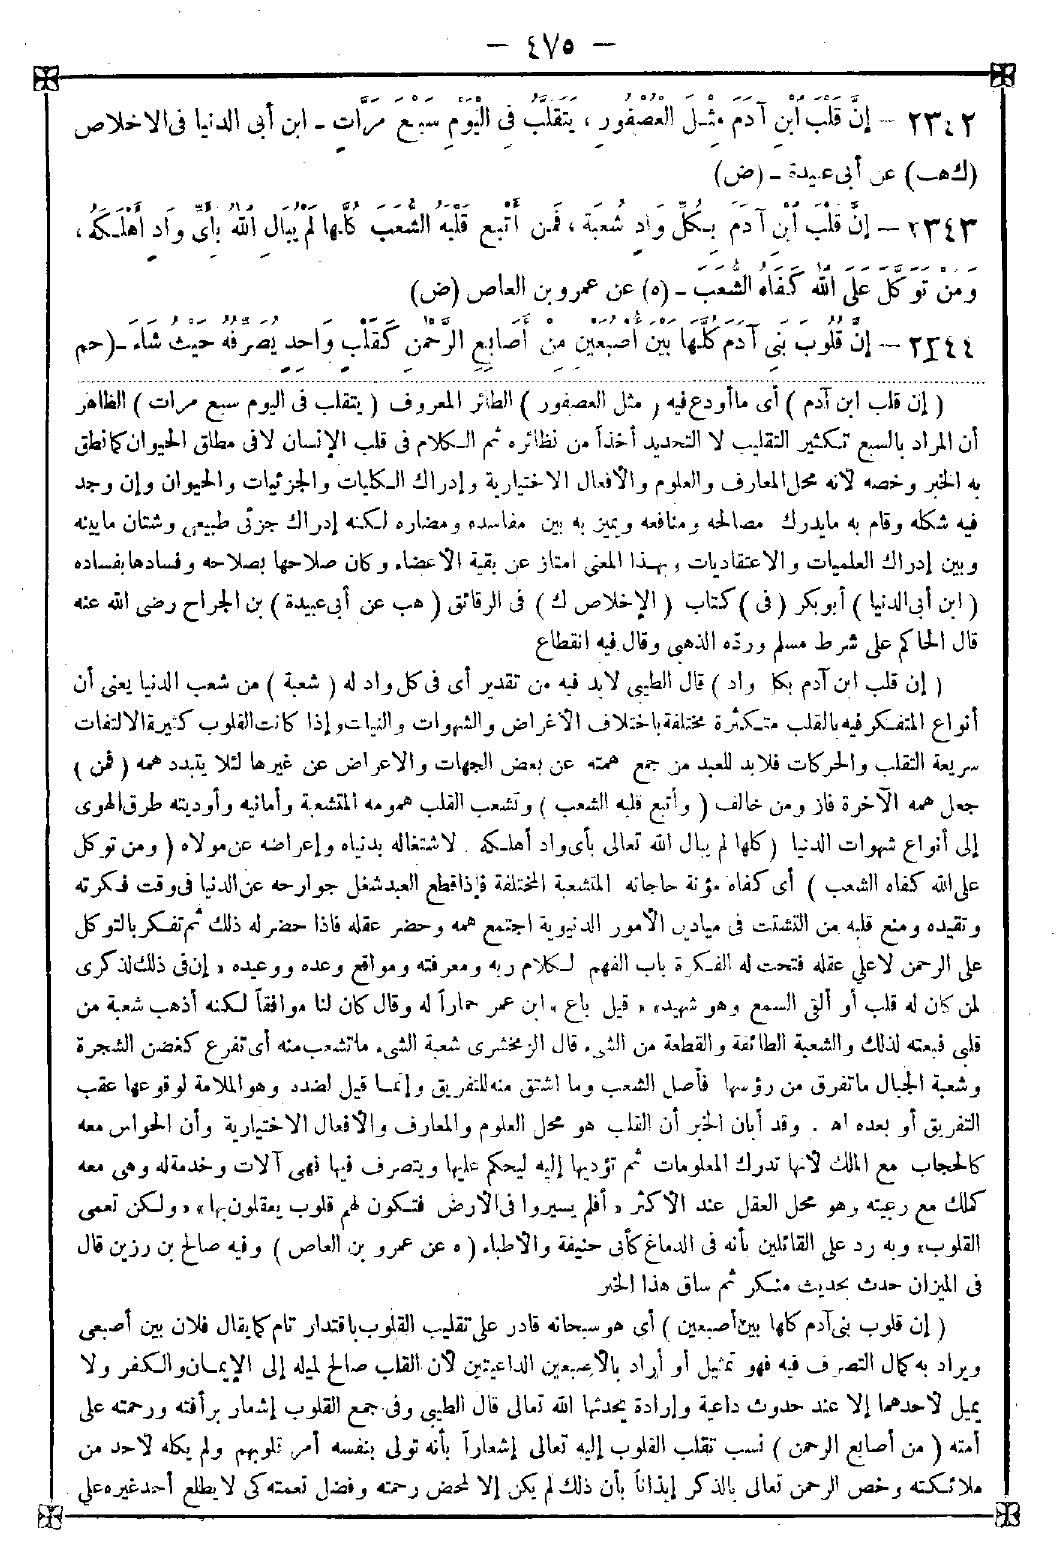 — ٤٧٥ —
٢٣٤٢ — إِنَّ قَلْبَ ابْنِ آدَمَ مِثْلُ الْعُصْفُورِ، يَتَقَلَّبُ فِي الْيَوْمِ سَبْعَ مَرَّاتٍ - ابن أبى الدنيا فى الاخلاص
(ك هب) عن أبى عبيدة - (ض)
٢٣٤٣ — إِنَّ قَلْبَ ابْنِ آدَمَ بِكُلِّ وَادٍ شُعْبَة، فَمَنْ أَتْبَعَ قَلْبَهُ الشُّعَبَ كُلَّهَا لَمْ يُبَالِ اللهُ بِأَيِّ وَادٍ أَهْلَكَهُ،
وَمَنْ تَوَكَّلَ عَلَى اللهِ كَفَاهُ الشُّعَبَ - (ه) عن عمرو بن العاص (ض)
٢٣٤٤ — إِنَّ قُلُوبَ بَنِي آدَمَ كُلَّهَا بَيْنَ أُصْبُعَيْنِ مِنْ أَصَابِعِ الرَّحْمٰنِ كَقَلْبٍ وَاحِدٍ يُصَرِّفُهُ حَيْثُ شَاءَ - (حم
( إن قلب ابن آدم ) أى ما أودع فيه ( مثل العصفور ) الطائر المعروف ( يتقلب فى اليوم سبع مرات ) الظاهر
أن المراد بالسبع تكثير التقليب لا التحديد أخذاً من نظائره ثم الكلام فى قلب الإنسان لا فى مطلق الحيوان كما نطق
به الخبر وخصه لأنه محل المعارف والعلوم والأفعال الاختيارية وإدراك الكليات والجزئيات والحيوان وإن وجد
فيه شكله وقام به ما يدرك مصالحه ومنافعه ويميز به بين مفاسده ومضاره لكنه إدراك جزئى طبيعى وشتان ما بينه
وبين إدراك العلميات والاعتقاديات وبهذا المعنى امتاز عن بقية الأعضاء وكان صلاحها بصلاحه وفسادها بفساده
( ابن أبى الدنيا ) أبو بكر ( فى ) كتاب ( الإخلاص ك ) فى الرقائق ( هب عن أبى عبيدة ) بن الجراح رضى الله عنه
قال الحاكم على شرط مسلم وردّه الذهبى وقال فيه انقطاع
( إن قلب ابن آدم بكل واد ) قال الطيبى لابد فيه من تقدير أى فى كل واد له ( شعبة ) من شعب الدنيا يعنى أن
أنواع المتفكر فيه بالقلب متكثرة مختلفة باختلاف الأغراض والشهوات والنيات وإذا كانت القلوب كثيرة الالتفات
سريعة التقلب والحركات فلابد للعبد من جمع همته عن بعض الجهات والاعراض عن غيرها لئلا يتبدد همه ( فمن )
جعل همه الآخرة فاز ومن خالف ( وأتبع قلبه الشعب ) وتشعب القلب همومه المتشعبة وأمانيه وأوديته طرق الهوى
إلى أنواع شهوات الدنيا ( كلها لم يبال الله تعالى بأى واد أهلكه . لاشتغاله بدنياه وإعراضه عن مولاه ( ومن توكل
على الله كفاه الشعب ) أى كفاه مؤنة حاجاته المتشعبة المختلفة فإذا قطع العبد شغل جوارحه عن الدنيا فى وقت فكرته
وتقيده ومنع قلبه من التشتت فى ميادين الأمور الدنيوية اجتمع همه وحضر عقله فاذا حضر له ذلك ثم تفكر بالتوكل
على الرحمن لا على عقله فتحت له الفكرة باب الفهم لكلام ربه ومعرفته ومواقع وعده ووعيده « إن فى ذلك لذكرى
لمن كان له قلب أو ألقى السمع وهو شهيد» « قيل باع » ابن عمر حماراً له وقال كان لنا موافقاً لكنه أذهب شعبة من
قلبى فبعته لذلك والشعبة الطائفة والقطعة من الشىء قال الزمخشرى شعبة الشىء ما تشعب منه أى تفرع كغصن الشجرة
وشعبة الجبال ما تفرق من رؤسها فأصل الشعب وما اشتق منه للتفريق وإنما قيل لضدد وهو الملامة لوقوعها عقب
التفريق أو بعده اه . وقد أبان الخبر أن القلب هو محل العلوم والمعارف والأفعال الاختيارية وأن الحواس معه
كالحجاب مع الملك لأنها تدرك المعلومات ثم تؤديها إليه ليحكم عليها ويتصرف فيها فهى آلات وخدمة له وهى معه
كملك مع رعيته وهو محل العقل عند الأكثر « أفلم يسيروا فى الأرض فتكون لهم قلوب يعقلون بها» «ولكن تعمى
القلوب» وبه رد على القائلين بأنه فى الدماغ كأبى حنيفة والأطباء ( ه عن عمرو بن العاص ) وفيه صالح بن رزين قال
فى الميزان حدث بحديث منكر ثم ساق هذا الخبر
( إن قلوب بنى آدم كلها بين أصبعين ) أى هو سبحانه قادر على تقليب القلوب باقتدار تام كما يقال فلان بين أصبعى
ويراد به كمال التصرف فيه فهو تمثيل أو أراد بالأصبعين الداعيتين لأن القلب صالح لميله إلى الإيمان والكفر ولا
يميل لأحدهما إلا عند حدوث داعية وإرادة يحدثها الله تعالى قال الطيبى وفى جمع القلوب إشعار برأفته ورحمته على
أمته ( من أصابع الرحمن ) نسب تقلب القلوب إليه تعالى إشعاراً بأنه تولى بنفسه أمر قلوبهم ولم يكله لأحد من
ملائكته وخص الرحمن تعالى بالذكر إيذاناً بأن ذلك لم يكن إلا لمحض رحمته وفضل نعمته كى لا يطلع أحد غيره على